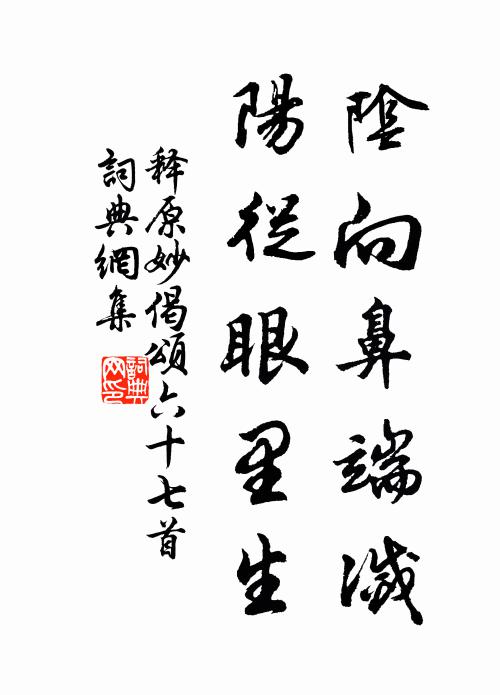 陰向鼻端滅
陽從眼里生
释原妙偈頌六十七首
詞典網集
詞典
网印